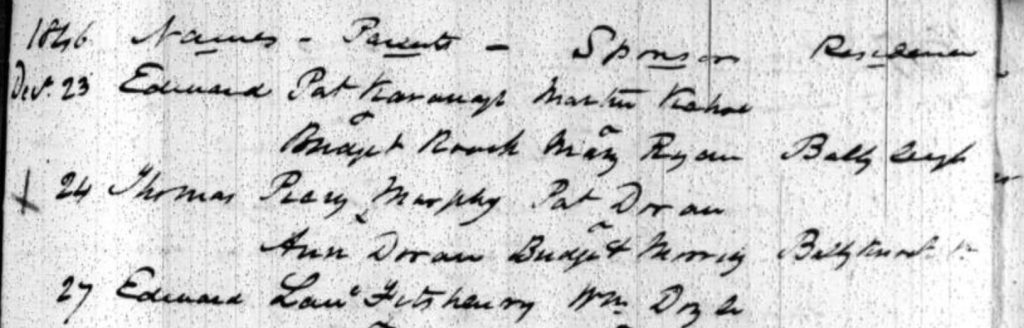 1846 Names - Parents - Sponsors Residence
Decr 23 Edward Pat Kavanagh Martin Kehoe
Bridget Roach Mary Ryan Ballyleigh
X 24 Thomas Murphy Pat Doran
Ann Doran Bridget Morrisy
27 Edward Laue Fitzhenry Wm Doyle